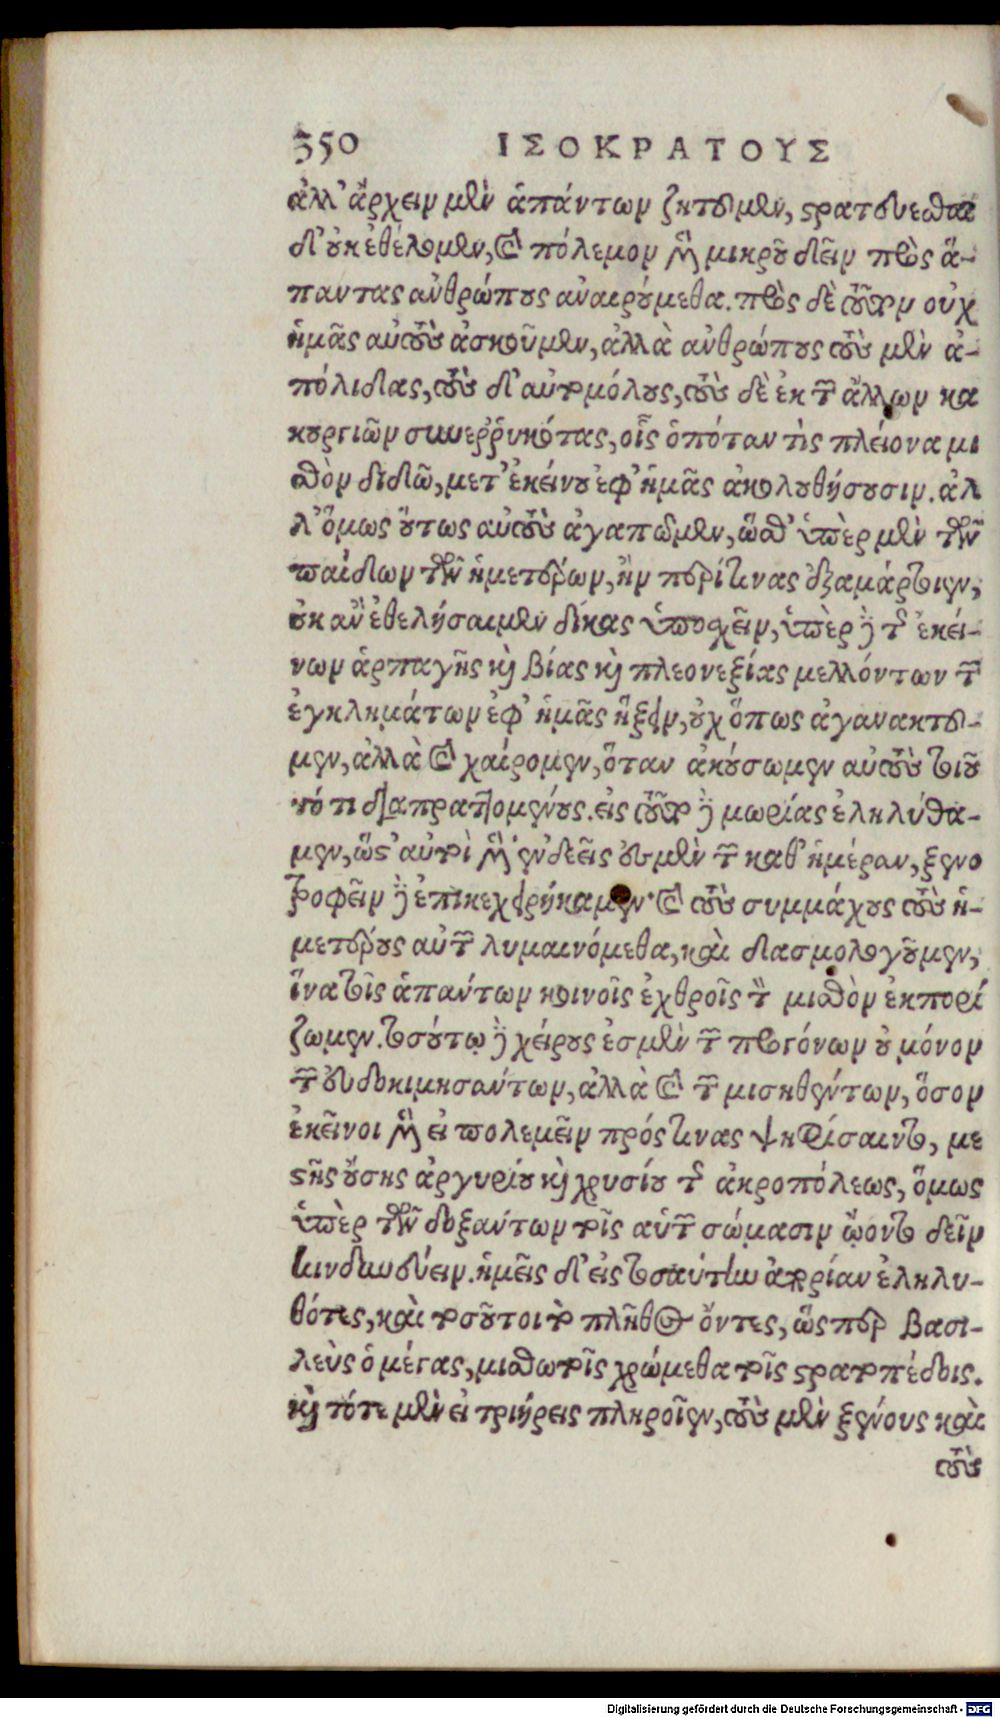 350 ΙΣΟΚΡΑΤΟΥΣ
ἀλλ' ἄρχειν μὲν ἁπάντων ζητοῦμεν, στρατεύεσθαι
δ' οὐκ ἐθέλομεν, καὶ πόλεμον μὲν μικροῦ δεῖν πρὸς ἅ-
παντας ἀνθρώπους ἀναιρούμεθα. πρὸς δὲ τοῦτον οὐχ
ἡμᾶς αὐτοὺς ἀσκοῦμεν, ἀλλὰ ἀνθρώπους τοὺς μὲν ἀ-
πόλιδας, τοὺς δ' αὐτομόλους, τοὺς δὲ ἐκ τῶν ἄλλων κα
κουργιῶν συνερρυηκότας, οἷς ὁπόταν τὶς πλείονα μι
σθὸν διδῶ, μετ' ἐκείνου ἐφ' ἡμᾶς ἀκολουθήσουσιν. ἀλ
λ' ὅμως οὕτως αὐτοὺς ἀγαπῶμεν, ὥσθ' ὑπὲρ μὲν τῶν
παίδων τῶν ἡμετέρων, ἢν περί τινας ἐξαμάρτωσιν,
οὐκ ἂν ἐθελήσαιμεν δίκας ὑποσχεῖν, ὑπὲρ δὲ τῆς ἐκεί-
νων ἁρπαγῆς καὶ βίας καὶ πλεονεξίας μελλόντων τῶν
ἐγκλημάτων ἐφ' ἡμᾶς ἥξειν, οὐχ ὅπως ἀγανακτοῦ-
μεν, ἀλλὰ καὶ χαίρομεν, ὅταν ἀκούσωμεν αὐτοὺς τοιοῦ
τό τι διαπραττομένους. εἰς τοῦτο δὲ μωρίας ἐληλύθα-
μεν, ὥστ' αὐτοὶ μὲν ἐνδεεῖς ἐσμὲν τῶν καθ' ἡμέραν, ξενο
τροφεῖν δὲ ἐπικεχειρήκαμεν· καὶ τοὺς συμμάχους τοὺς ἡ-
μετέρους αὐτῶν λυμαινόμεθα, καὶ δασμολογοῦμεν,
ἵνα τοῖς ἁπάντων κοινοῖς ἐχθροῖς τὸν μισθὸν ἐκπορί
ζωμεν. τοσούτῳ δὲ χείρους ἐσμὲν τῶν προγόνων οὐ μόνον
τῶν εὐδοκιμησάντων, ἀλλὰ καὶ τῶν μισηθέντων, ὅσον
ἐκεῖνοι μὲν εἰ πολεμεῖν πρός τινας ψηφίσαιντο, με
στῆς οὔσης ἀργυρίου καὶ χρυσίου τῆς ἀκροπόλεως, ὅμως
ὑπὲρ τῶν δοξάντων τοῖς αὑτῶν σώμασιν ᾤοντο δεῖν
κινδυνεύειν. ἡμεῖς δ' εἰς τοσαύτην ἀπορίαν ἐληλυ-
θότες, καὶ τοσοῦτοι τὸ πλῆθος ὄντες, ὥσπερ βασι-
λεὺς ὁ μέγας, μισθωτοῖς χρώμεθα τοῖς στρατοπέδοις.
καὶ τότε μὲν εἰ τριήρεις πληροῖεν, τοὺς μὲν ξένους καὶ
τοὺς
Digitalisierung gefördert durch die Deutsche Forschungsgemeinschaft - DFG